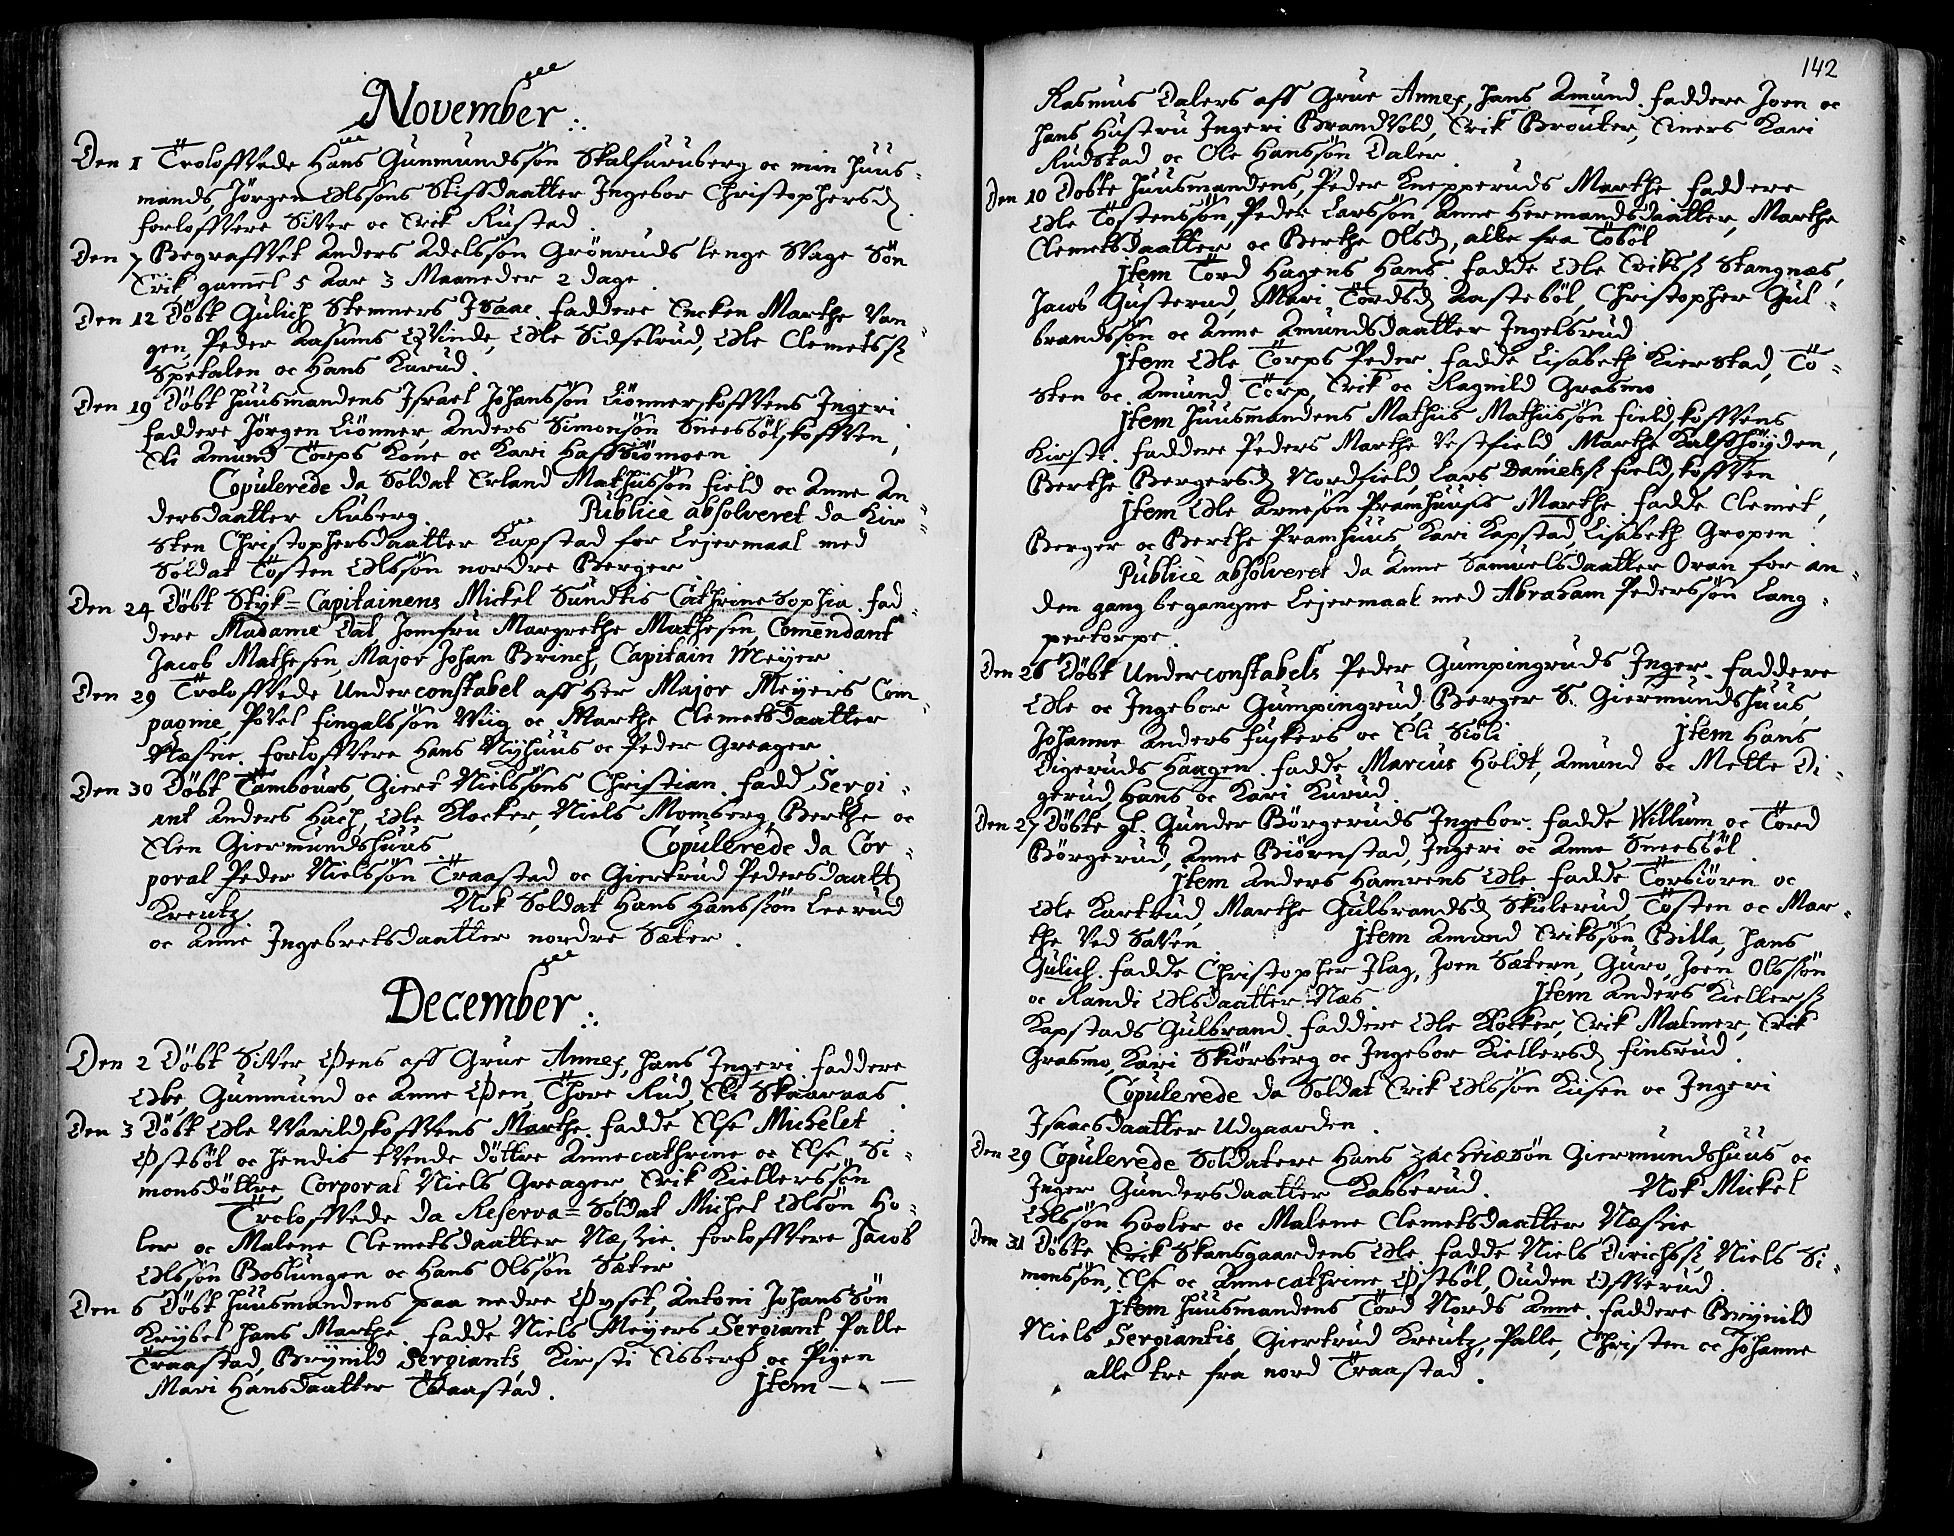 November
Den 1 Troloffvede Hans Gunmundssøn Skalfuruberg oc min Huus-
mands, Jørgen Olssons Stiffdaatter Ingebor Christophersd.
forloffvere Siver oc Erik Rustad.
Den 7 Begraffvet Anders Adelssøn Grønruds lenge Svage Søn
Erik gamel 5 Aar 3 Maaneder 2 dage.
Den 12 Døbt Gulich Stemners Isaac. faddere Encken Marthe Van-
gen, Peder Aasums Qvinde, Ole Sidselrud, Ole Clemetsß
Spetalen oc Hans Kurud.
Den 19 Døbt Huusmandens Israel Johanssøn Liønnerskoffvens Ingeri
faddere Jørgen Liønner, Anders Simonsøn Sneesbølskoffven,
Eli Amund Torps Kone oc Kari Haffsiømoen
Copulerede da Soldat Erland Mathiissøn field oc Anne An-
dersdaatter Ruberg. Publicè absolveret da Kir-
sten Christophersdaatter Kapstad for Lejermaal med
Soldat Tosten Olssøn nordre Berger
Den 24 Døbt Styk=Capitainens Mickel Sundtis Cathrine Sophia. fad-
dere Madame Dal, Jomfru Margrethe Mathesen, Comendant
Jacob Mathesen, Major Johan Brinch, Capitain Meyer
Den 29 Troloffvede Underconstabel aff Her Major Meyers Com-
pagnie, Povel fingalssøn Wiig oc Marthe Clemetsdaatter
Næssie. forloffvere Hans Nyhuus oc Peder Greager.
Den 30 Døbt Tambours, Giert Nielssøns Christian. fadd Sergi-
ant Anders Huch, Ole Klocker, Niels Momberg, Berthe oc
Elen Giermundshuus. Copulerede da Cor-
poral Peder Nielssøn Traastad oc Giertrud Pedersdaatt
Kreutz. Nok Soldat Hans Hanssøn Leerud
oc Anne Ingebretsdaatter nordre Sæter.
December
Den 2 Døbt Siver Øens aff Grue Annex, hans Ingeri. faddere
Ole Gunmund oc Anne Øen, Thore Rud, Eli Skaaraas.
Den 3 Døbt Ole Varildskoffvens Marthe. fadde Else Michelet
Østbøl oc hendis tvende døttre Annecathrine oc Else Si-
monsdøttre, Corporal Niels Greager Erik Kiellerssøn
Troloffvede da Reserva=Soldat Michel Olssøn Ho-
ler oc Malene Clemetsdaatter Næssie. forloffvere Jacob
Olssøn Boslungen oc Hans Olssøn Sæter
Den 6 Døbt Huusmandens paa nedre Øyset, Antoni Johanssøn
Krybel hans Marthe. fadde Niels Meyers Sergiant Palle
Traastad, Brynild Sergiants, Kirsti Esberg oc Pigen
Mari Hansdaatter Traastad. Item —
142
Rasmus Dalers aff Grue Annex, hans Amund. faddere Joen oc
hans Hustru Ingeri Brandvold, Erik Brouter, Einers Kari
Rudstad oc Ole Hanssøn Daler.
Den 10 Døbte Huusmandens, Peder Knepperuds Marthe. faddere
Ole Tostenssøn, Peder Larssøn, Anne Hermandsdaatter, Marthe
Clemetsdaatter oc Berthe Olsd, alle fra Tosbøl
Item Tord Hagens Hans. fadde Ole Eriksß Stangnæs,
Jacob Gusterud, Mari Tordsd Aastebøl, Christopher Gul-
brandssøn oc Anne Amundsdaatter Ingelsrud
Item Ole Torps Peder. fadde Lisabeth Kierstad, To-
sten oc Amund Torp, Erik oc Ragnild Grasmo
Item Huusmandens Mathiis Mathiissøn field,skoffvens
Kirsti. faddere Peders Marthe Vestfield, Marthe Kalsshøyden,
Berthe Bergersd Nordfield, Lars Danielsß field,skoffven
Item Ole Arnesøn Pramhuuss Marthe. fadde Clemet,
Berger oc Berthe Pramhuus Kari Kapstad, Lisabeth Gropen.
Publicè absolveret da Anne Samuelsdaatter Oran for an-
den gang begangne Lejermaal med Abraham Pederssøn Lang-
pertorpe.
Den 26 Døbt Underconstabels Peder Gumpingruds Inger. faddere
Ole oc Ingebor Gumpingrud, Berger S. Giermundshuus
Johanne Anders fiskers oc Eli Siøli Item Hans
Digeruds Haagen. fadde Marcus Holdt, Amund oc Mette Di-
gerud, Hans oc Kari Kurud.
Den 27 Døbte gl. Gunder Børgeruds Ingebor. fadde Willum oc Tord
Børgerud, Anne Biørnstad, Ingeri oc Anne Sneesbøl.
Item Anders Hamrens Ole. fadde Torbiørn oc
Ole Kartrud, Marthe Gulbrandsd Skulerud, Tosten oc Mar-
the ved Saven. Item Amund Erikssøn Billa, hans
Gulich. fadde Christopher Ilag, Joen Sætern, Guro, Joen Olssøn
oc Randi Olsdaatter Næs. Item Anders Kiellersß
Kapstads Gulbrand. faddere Ole Klocker, Erik Malmer, Erik
Grasmo, Kari Skiørberg oc Ingebor Kiellersd finsrud.
Copulerede da Soldat Erik Olssøn Kiisen oc Ingeri
Isaacsdaatter Udgaarden.
Den 29 Copulerede Soldatere Hans Zachriæsøn Giermundshuus oc
Inger Gundersdaatter Kabberud. Nok Mickel
Olssøn Hooler oc Malene Clemetsdaatter Næssie
Den 31 Døbte Erik Skansgaardens Ole. fadde Niels Dirichsß, Niels Si-
monssøn, Else oc Annecathrine Østbøl, Ouden Offverud.
Item Huusmandens Tord Nords Anne. faddere Brynild
Niels Sergiantis, Giertrud Kreutz, Palle, Christen oc Johanne
alle tre fra nord Traastad.